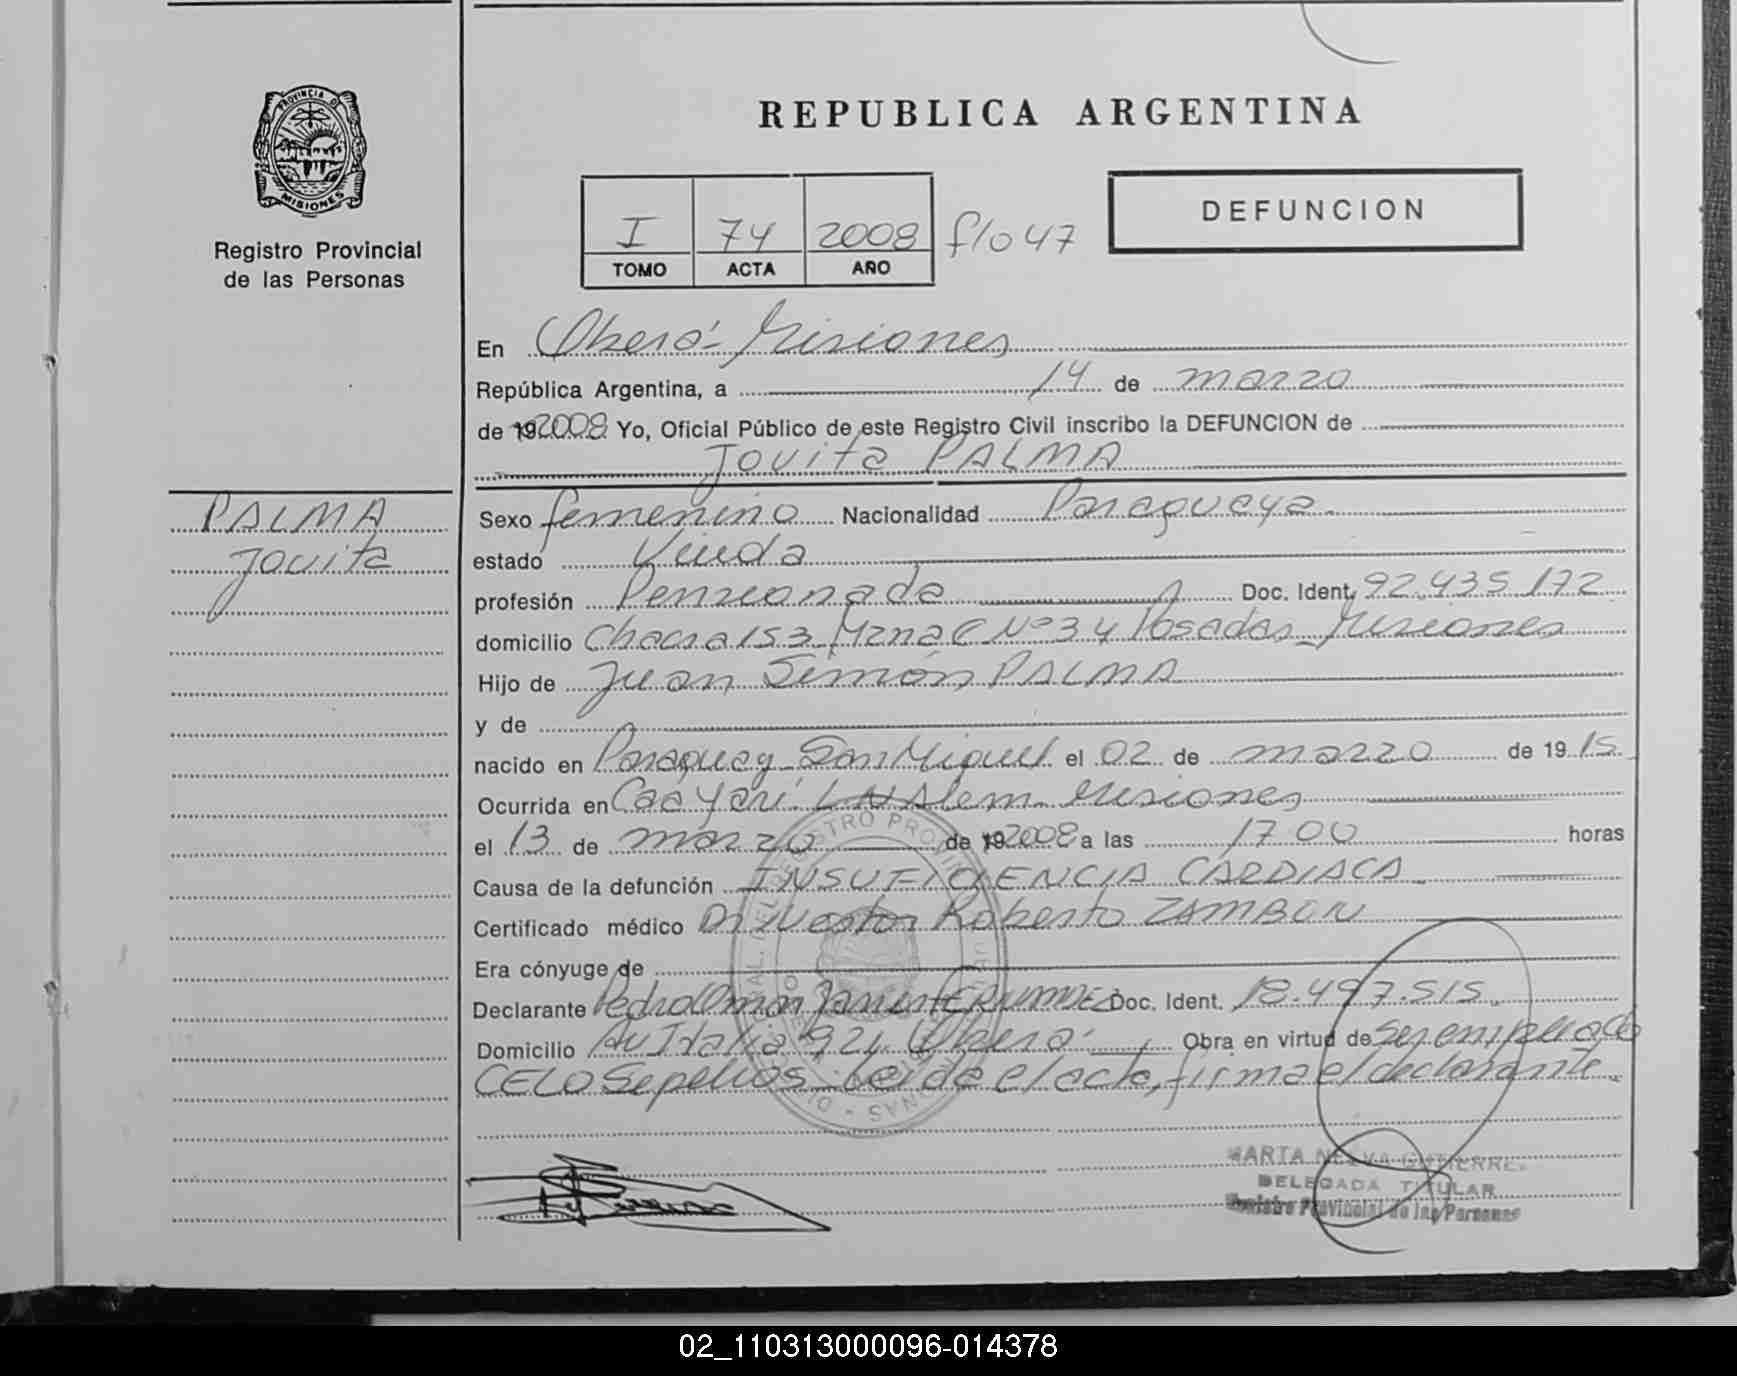 REPUBLICA ARGENTINA
PROVINCIA DE
MISIONES
Registro Provincial
de las Personas
I 74 2008 f/o 47
TOMO ACTA AÑO
DEFUNCION
En Oberá - Misiones
República Argentina, a 14 de marzo
de 192008 Yo, Oficial Público de este Registro Civil inscribo la DEFUNCION de
Jovita PALMA
PALMA
Jovita
Sexo femenino Nacionalidad Paraguaya
estado Viuda
profesión Pensionada Doc. Ident. 92.435.172
domicilio Chacra 153 Mzna C Nº 34 Posadas - Misiones
Hijo de Juan Simón PALMA
y de
nacido en Paraguay San Miguel el 02 de marzo de 1915
Ocurrida en Caa Yarí LN Alem Misiones
el 13 de marzo de 192008 a las 17 00 horas
Causa de la defunción INSUFICIENCIA CARDIACA
Certificado médico Dr Nestor Roberto ZAMBON
Era cónyuge de
Declarante Pedro Omar Doc. Ident. 18.497.515.
Domicilio Av Italia 921 Oberá Obra en virtud de ser empleado
CELO Sepelios. Leida el acta, firma el declarante
MARTA NELVA GUTIERREZ
DELEGADA TITULAR
Registro Provincial de las Personas
02_110313000096-014378